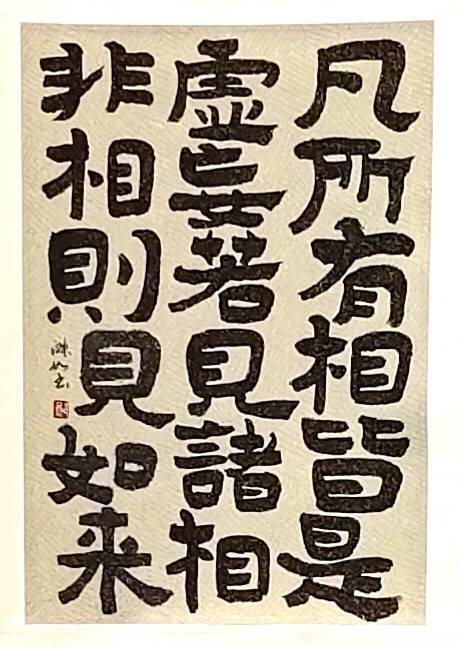 凡所有相皆是
虚妄若見諸相
非相則見如来